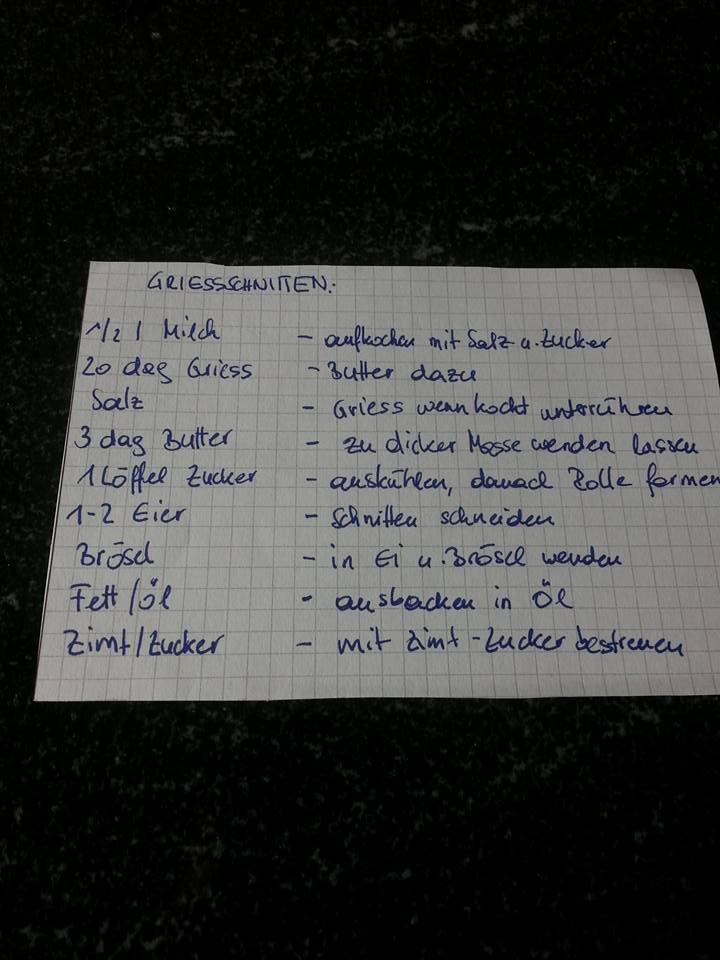 GRIESSSCHNITTEN:
1/2 l Milch - aufkochen mit Salz u. Zucker
20 dag Griess - Butter dazu
Salz - Griess wenn kocht unterrühren
3 dag Butter - zu dicker Masse werden lassen
1 Löffel Zucker - auskühlen, danach Rolle formen
1-2 Eier - Schnitten schneiden
Brösel - in Ei u. Brösel wenden
Fett/Öl - ausbacken in Öl
Zimt/Zucker - mit Zimt-Zucker bestreuen